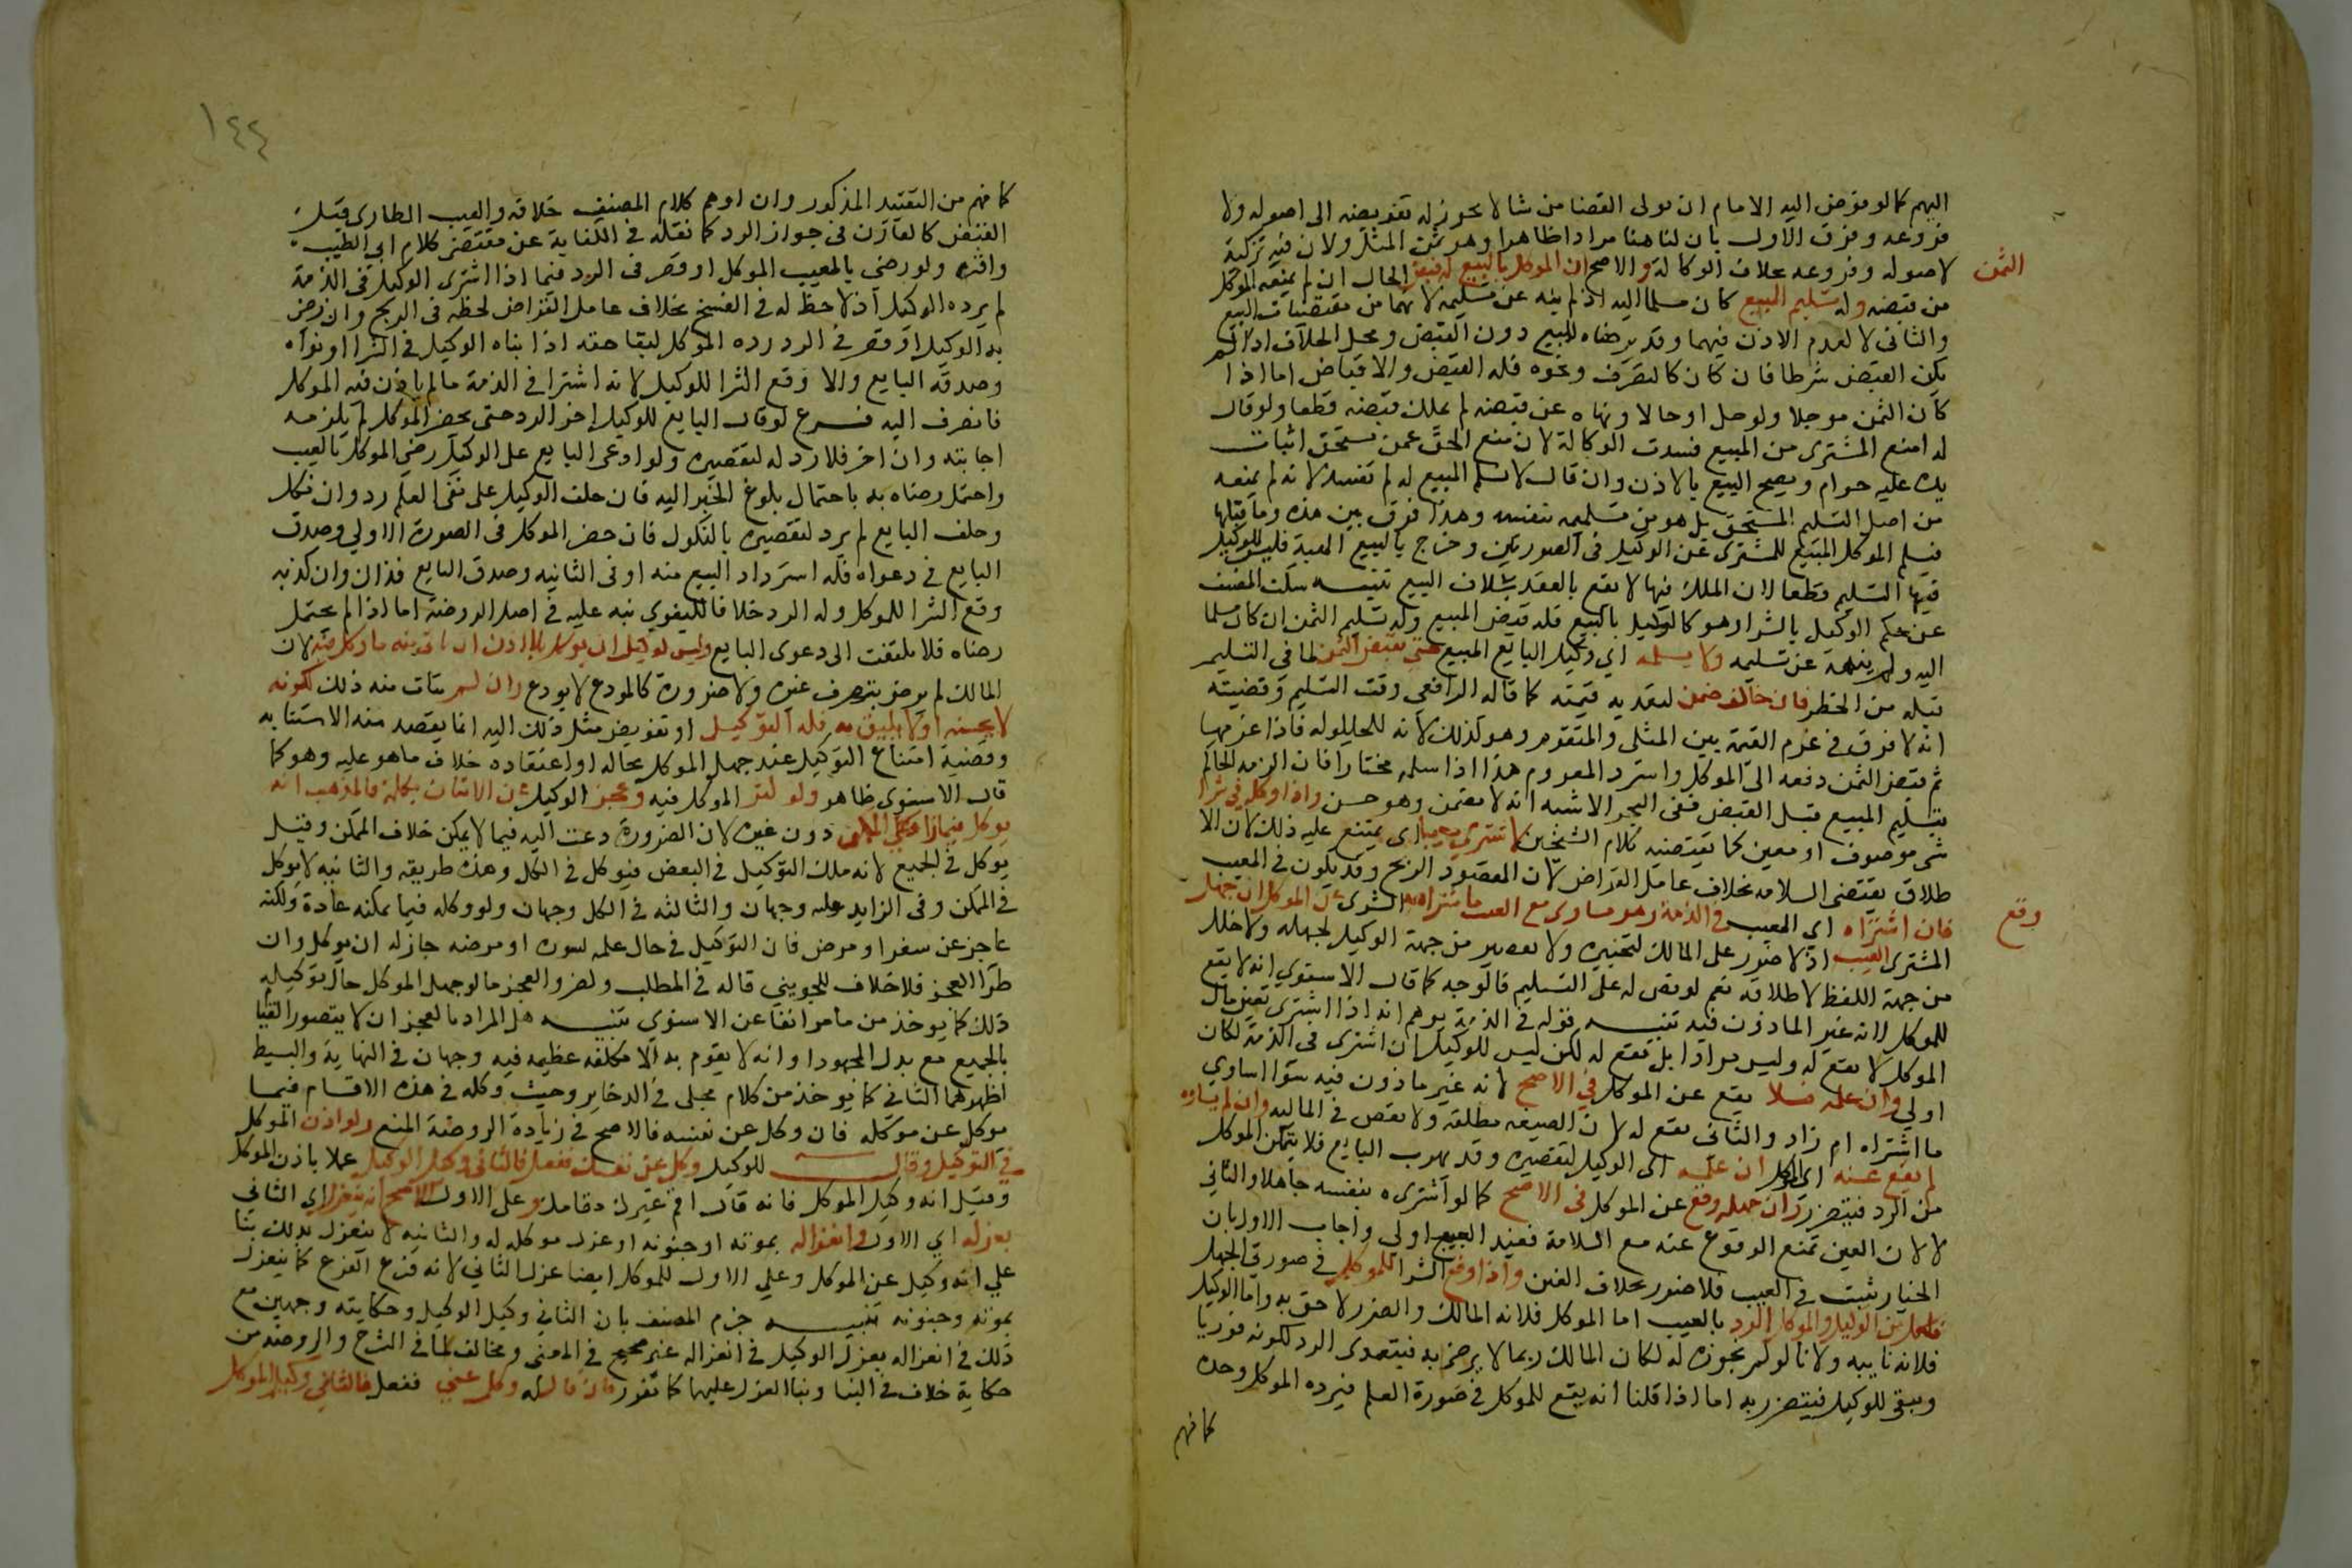 اليهم كما لو فوض اليه الامام ان يولى القضا من شا لا يجوز له تفويضه الى اصوله ولا
فروعه وفرق الاول بان لنا هنا مرادا ظاهرا وهو ثمن المثل ولان فيه تزكية
لاصوله وفروعه بخلاف الوكالة والاصح ان الموكل بالبيع له قبض الحال ان لم يمنعه الموكل
الثمن
من قبضه وله تسليم المبيع كان مسلما اليه اذ لم ينه عن تسليمه لانهما من مقتضيات البيع
والثانى لا لعدم الاذن فيهما وقد يرضاه للبيع دون القبض ومحل الخلاف اذا لم
يكن القبض شرطا فان كان كالصرف ونحوه فله القبض والاقباض اما اذا
كان الثمن موجلا ولو حل او حالا ونهاه عن قبضه لم يملك قبضه قطعا ولو قال
له امنع المشترى من المبيع فسدت الوكالة لان منع الحق عمن يستحق اثبات
يده عليه حرام ويصح البيع بالاذن وان قال لا تسلم المبيع له لم تفسد لانه لم يمنعه
من اصل التسليم المستحق بل هو من تسليمه بنفسه وهذا فرق بين هذه وما قبلها
فيسلم الموكل المبيع للمشترى عن الوكيل فى الصورتين وخرج بالبيع الهبة فليس للوكيل
فيها التسليم قطعا لان الملك فيها لا يقع بالعقد بخلاف البيع تنبيه سكت المصنف
عن حكم الوكيل بالشرا وهو كالوكيل بالبيع فله قبض المبيع وله تسليم الثمن ان كان مسلما
اليه ولم ينهه عن تسليمه ولا يسلمه اي وكيل البايع المبيع حتى يقبض الثمن لما فى التسليم
قبله من الخطر فان خالف ضمن لتعديه قيمته كما قاله الرافعي وقت التسليم وقضيته
انه لا فرق فى غرم القيمة بين المثلى والمتقوم وهو كذلك لانه للحيلولة فاذا غرمها
ثم قبض الثمن دفعه الى الموكل واسترد المغروم هذا اذا سلمه مختارا فان الزمه الحاكم
بتسليم المبيع قبل القبض ففى البحر الاشبه انه لا يضمن وهو حسن واذا وكله فى شرا
شى موصوف او معين كما يقتضيه كلام الشيخين لا يشتري معيبا اى يمتنع عليه ذلك لان الا
طلاق يقتضى السلامه بخلاف عامل القراض لان المقصود الربح وقد يكون فى المعيب
فان اشتراه اي المعيب فى الذمة وهو يساوى مع العيب ما اشتراه به الشرى عن الموكل ان جهل
وقع
المشترى العيب اذ لا ضرر على المالك لتخييره ولا تقصير من جهة الوكيل لجهله ولا خلل
من جهة اللفظ لاطلاقه نعم لو نص له على التسليم فالوجه كما قال الاسنوي انه لا يقع
للموكل لانه غير الماذون فيه تنبيه قوله فى الذمة يوهم انه اذا اشترى بعين مال
الموكل لا يقع له وليس مرادا بل يقع له لكن ليس للوكيل ان اشترى فى الذمة لكان
اولى وان علمه فلا يقع عن الموكل في الاصح لانه غير ماذون فيه سوا اساوي
ما اشتراه ام زاد والثانى يقع له لان الصيغه مطلقه ولا نقص فى الماليه وان لم يساوه
لم يقع عنه اى الموكل ان علمه اى الوكيل لتقصيره وقد يهرب البايع فلا يتمكن الموكل
من الرد فيتضرر وان جهله وقع عن الموكل فى الاصح كما لو اشتراه بنفسه جاهلا والثاني
لا لان العين تمنع الوقوع عنه مع السلامة فعند العيب اولى واجاب الاول بان
الخيار يثبت فى العيب فلا ضرر بخلاف الغبن واذا وقع الشرا للموكل فى صورتي الجهل
فلكل من الوكيل والموكل الرد بالعيب اما الموكل فلانه المالك والضرر لاحق به واما الوكيل
فلانه نايبه ولانا لو لم نجوزه له لكان المالك ربما لا يرضى به فيتعدى الرد لكونه فوريا
ويبقى للوكيل فيتضرر به اما اذا قلنا انه يقع للموكل فى صورة العلم فيرده الموكل وحده
كما فهم
١٤٤
كما فهم من التقييد المذكور وان اوهم كلام المصنف خلافه والعيب الطارى قبل
القبض كالمقارن فى جواز الرد كما نقله فى الكفاية عن مقتضى كلام ابى الطيب
واقره ولو رضى بالمعيب الموكل او قصر فى الرد فيما اذا اشترى الوكيل فى الذمة
لم يرده الوكيل اذ لا حظ له فى الفسخ بخلاف عامل القراض لحظه فى الربح وان رضى
به الوكيل او قصر فى الرد رده الموكل لبقا حقه اذا نواه الوكيل فى الشرا او نواه
وصدقه البايع والا وقع الشرا للوكيل لانه اشترا فى الذمة ما لم ياذن فيه الموكل
فانصرف اليه فرع لو قال البايع للوكيل اخر الرد حتى يحضر الموكل لم يلزمه
اجابته وان اخر فلا رد له لتقصيره ولو ادعى البايع على الوكيل رضى الموكل بالعيب
واحتمل رضاه به باحتمال بلوغ الخبر اليه فان حلف الوكيل على نفى العلم رد وان نكل
وحلف البايع لم يرد لتقصيره بالنكول فان حضر الموكل فى الصورة الاولى وصدق
البايع فى دعواه فله استرداد المبيع منه او فى الثانيه وصدق البايع فذان وان كذبه
وقع الشرا للموكل وله الرد خلافا للبغوي نبه عليه فى اصل الروضة اما اذا لم يحتمل
رضاه فلا يلتفت الى دعوى البايع وليس لوكيل ان يوكل بلا اذن ان تاتى منه ما وكل فيه لان
المالك لم يرض بتصرف غيره ولا ضرورة كالمودع لا يودع وان لم يتات منه ذلك لكونه
لا يحسنه او لا يليق به فله التوكيل او تفويض مثل ذلك اليه انما يقصد منه الاستنابه
وقضية امتناع التوكيل عند جهل الموكل بحاله او اعتقاده خلاف ما هو عليه وهو كما
قال الاسنوى ظاهر ولو كثر الموكل فيه وعجز الوكيل عن الاتيان بكله فالمذهب انه
يوكل فيما زاد على الممكن دون غيره لان الضرورة دعت اليه فيما لا يمكن خلاف الممكن وقيل
يوكل فى الجميع لانه ملك التوكيل فى البعض فيوكل فى الكل وهذه طريقه والثانيه لا يوكل
فى الممكن وفى الزايد عليه وجهان والثالثه فى الكل وجهان ولو وكله فيما يمكنه عادة ولكنه
عاجز عن سفر او مرض فان التوكيل فى حال علمه لسفره او مرضه جاز له ان يوكل وان
طرا العجز فلا خلاف للجويني قاله فى المطلب ولطرو العجز ما لو جهل الموكل حال توكيله
ذلك كما يوخذ من ما مر انفا عن الاسنوي تنبيه هل المراد بالعجز ان لا يتصور القيام
بالجميع مع بذل المجهود او انه لا يقوم به الا بكلفه عظيمه فيه وجهان فى النهاية والبسيط
اظهرهما الثانى كما يوخذ من كلام مجلى فى الدخاير وحيث وكله فى هذه الاقسام فيما
موكل عن موكله فان وكل عن نفسه فالاصح فى زيادة الروضة المنع ولو اذن الموكل
فى التوكيل وقال للوكيل وكل عن نفسك ففعل فالثانى وكيل الوكيل عملا باذن الموكل
وقيل انه وكيل الموكل فانه قال اقم غيرك مقامك وعلى الاول الاصح انه ينعزل اي الثانى
بعزله اي الاول وانعزاله بموته او جنونه او عزل موكله له والثانيه لا ينعزل بذلك بنا
على انه وكيل عن الموكل وعلي الاول للموكل ايضا عزل الثاني لانه فرع الفرع كما ينعزل
بموته وجنونه تنبيه جزم المصنف بان الثاني وكيل الوكيل وحكايته وجهين مع
ذلك فى انعزاله بعزل الوكيل فى انعزاله غير صحيح فى المعنى ومخالف لما فى الشرح والروضة من
حكاية خلاف فى البنا وبنا العزل عليهما كما تقرر فان قال له وكل عني ففعل فالثانى وكيل الموكل